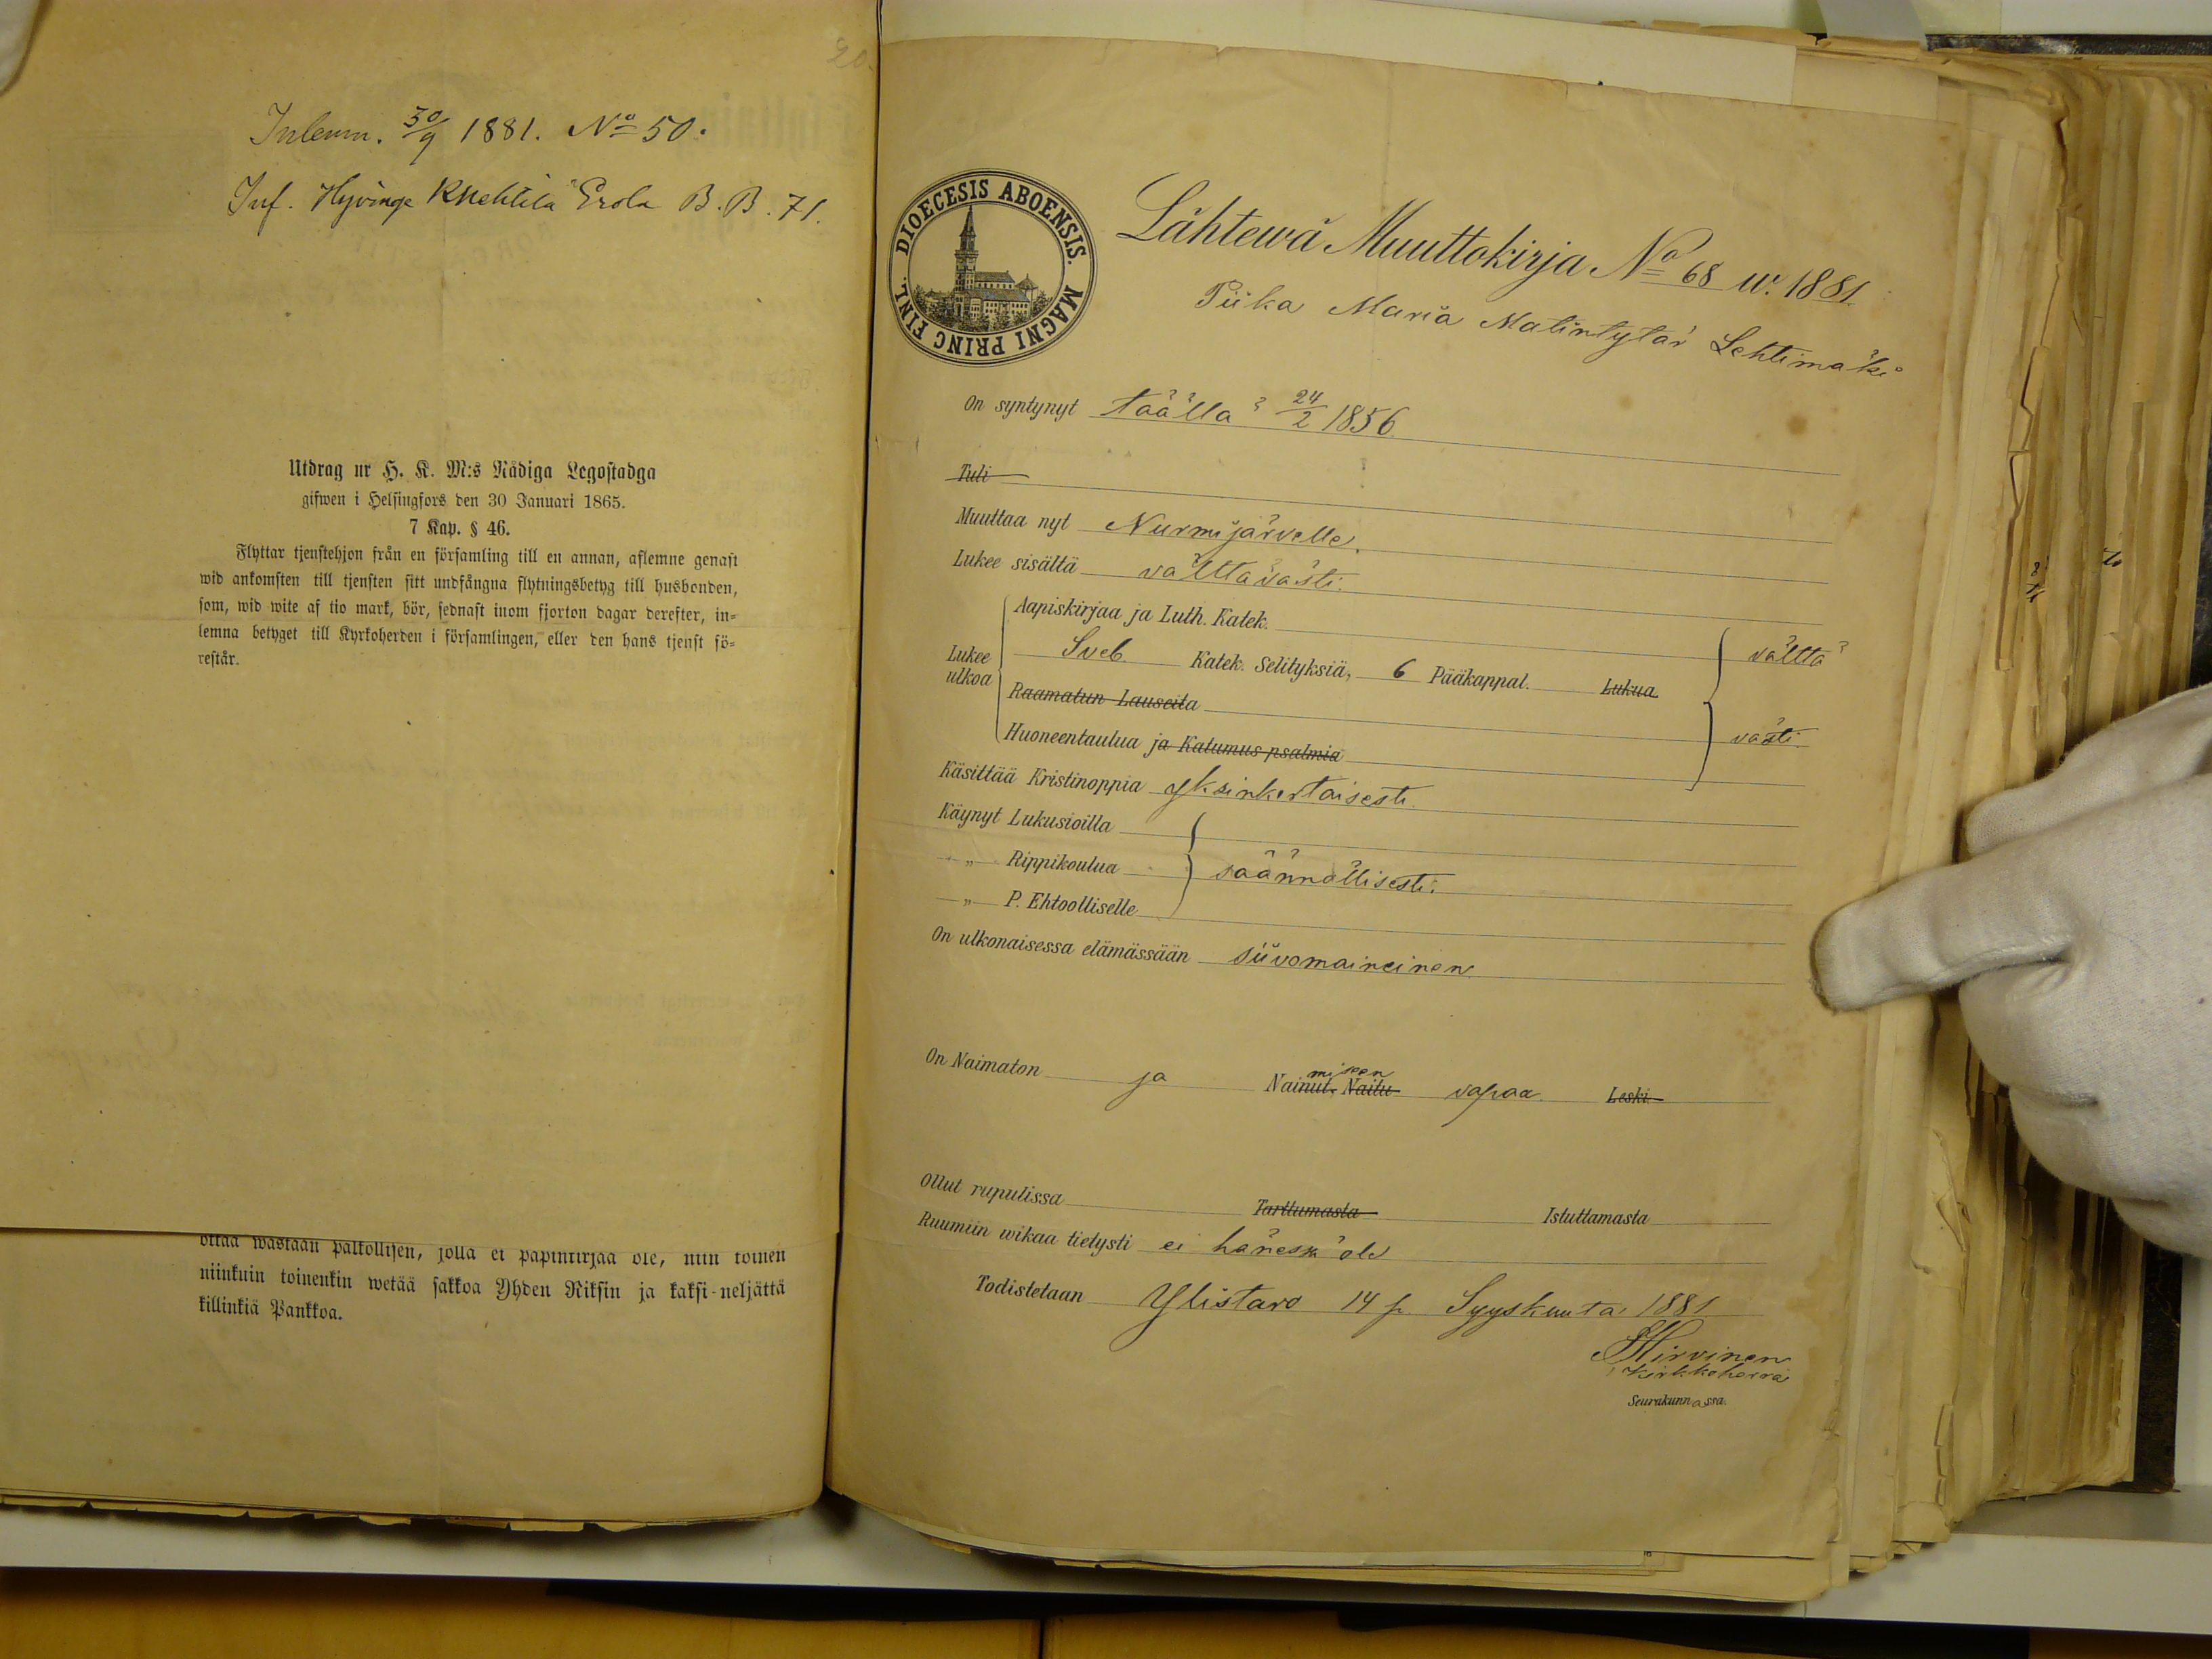 Inlemn. 30/9 1881. No 50.
Inf. Hyvinge Knehtilä Erola B. B. 71.
Utdrag ur H. K. M:s Nådiga Legostadga
gifwen i Helsingfors den 30 Januari 1865.
7 Kap. § 46.
Flyttar tjenstehjon från en församling till en annan, aflemne genast
wid ankomsten till tjensten sitt undfångna flytningsbetyg till husbonden,
som, wid wite af tio mark, bör, sednast inom fjorton dagar derefter, in=
lemna betyget till Kyrkoherden i församlingen, eller den hans tjenst fö=
restår.
ottaa wastaan palkollisen, jolla ei papinkirjaa ole, niin toinen
niinkuin toinenkin wetää sakkoa Yhden Riksin ja kaksi-neljättä
killinkiä Pankkoa.
DIOECESIS ABOENSIS. MAGNI PRINC FINL.
Lähtewä Muuttokirja No 68 w. 1881.
Piika Maria Matintytär Lehtimäki
On syntynyt täällä 24/2 1856.
Tuli
Muuttaa nyt Nurmijärvelle.
Lukee sisältä välttävästi.
Aapiskirjaa ja Luth. Katek.
Lukee ulkoa Sveb. Katek. Selityksiä, 6 Pääkappal. Lukua välttä
Raamatun Lauseita
Huoneentaulua ja Katumus psalmia västi.
Käsittää Kristinoppia yksinkertaisesti.
Käynyt Lukusioilla
„ Rippikoulua säännöllisesti.
„ P. Ehtoolliselle
On ulkonaisessa elämässään siivomaineinen.
On Naimaton ja Nainut, Naitu miseen vapaa. Leski.
Ollut rupulissa Tarttumasta Istuttamasta
Ruumiin wikaa tietysti ei hänessä ole
Todistetaan Ylistaro 14 p. Syyskuuta 1881.
Hirvinen
Kirkkoherra
Seurakunnassa.